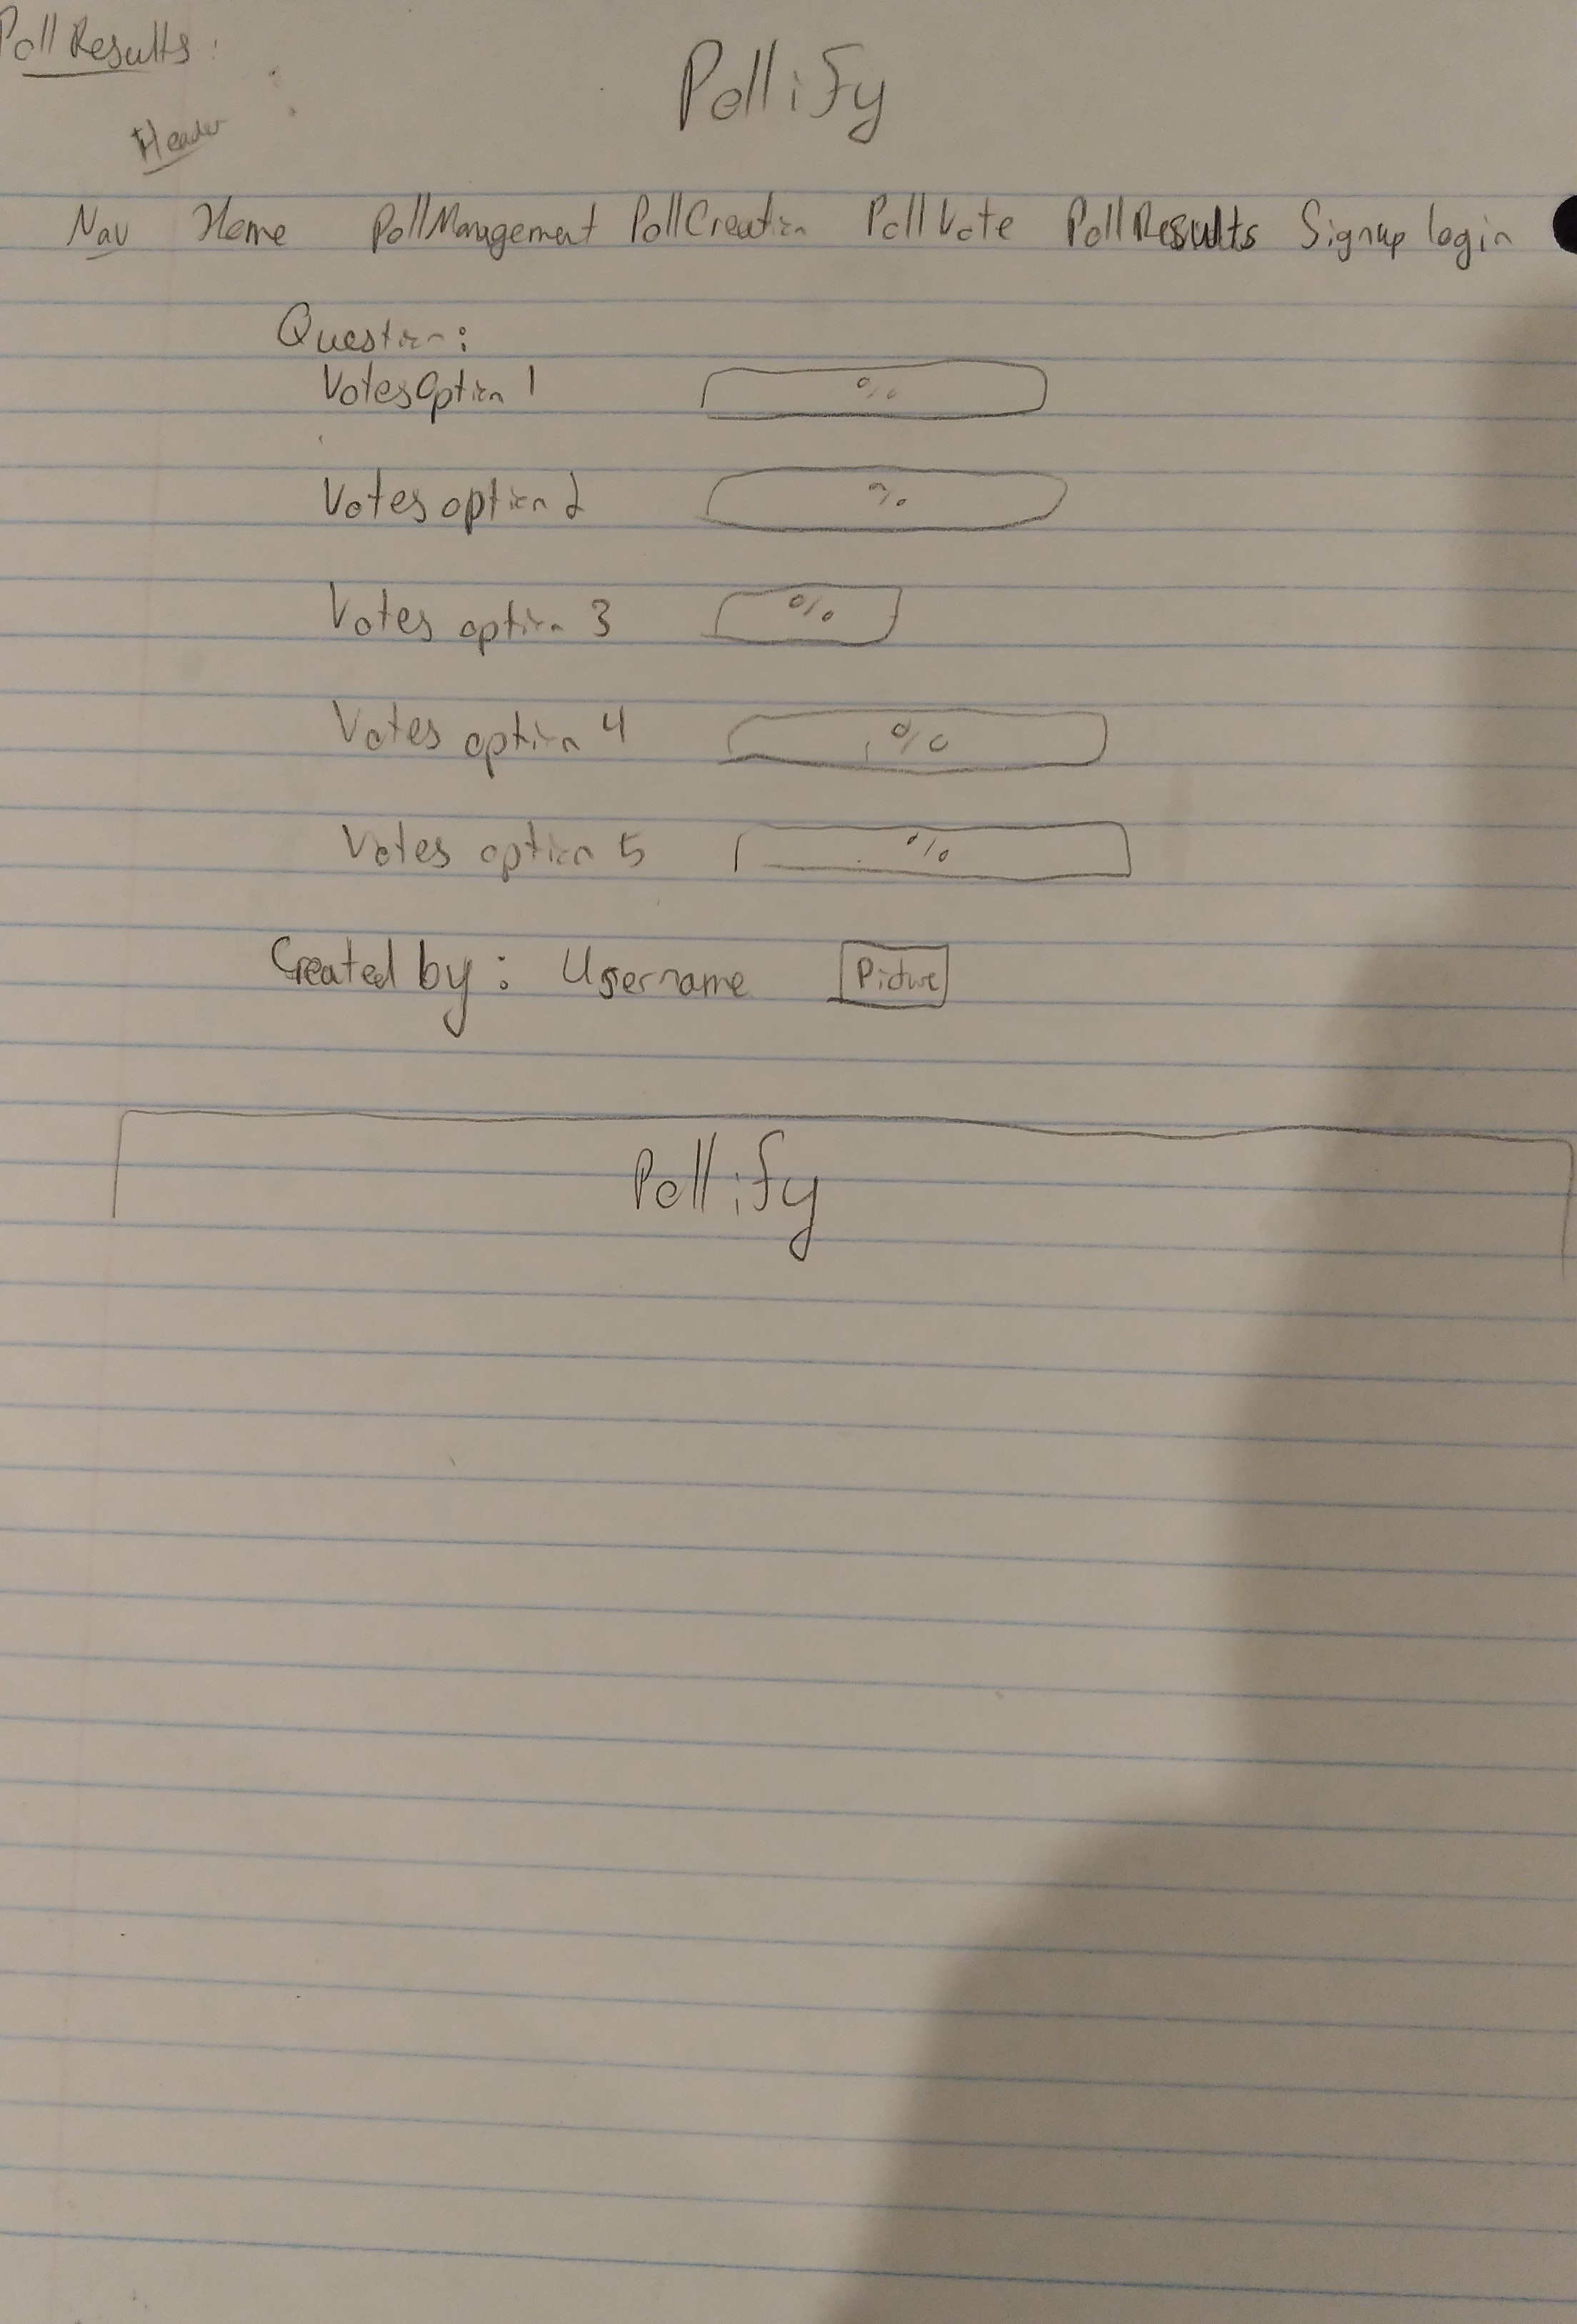 Poll Results:
Pollify
Header
Nav Home PollManagement PollCreation Poll Vote Poll Results Signup login
Question:
Votes Option 1 %
Votes option 2 %
Votes option 3 %
Votes option 4 %
Votes option 5 %
Created by: Username Picture
Pollify